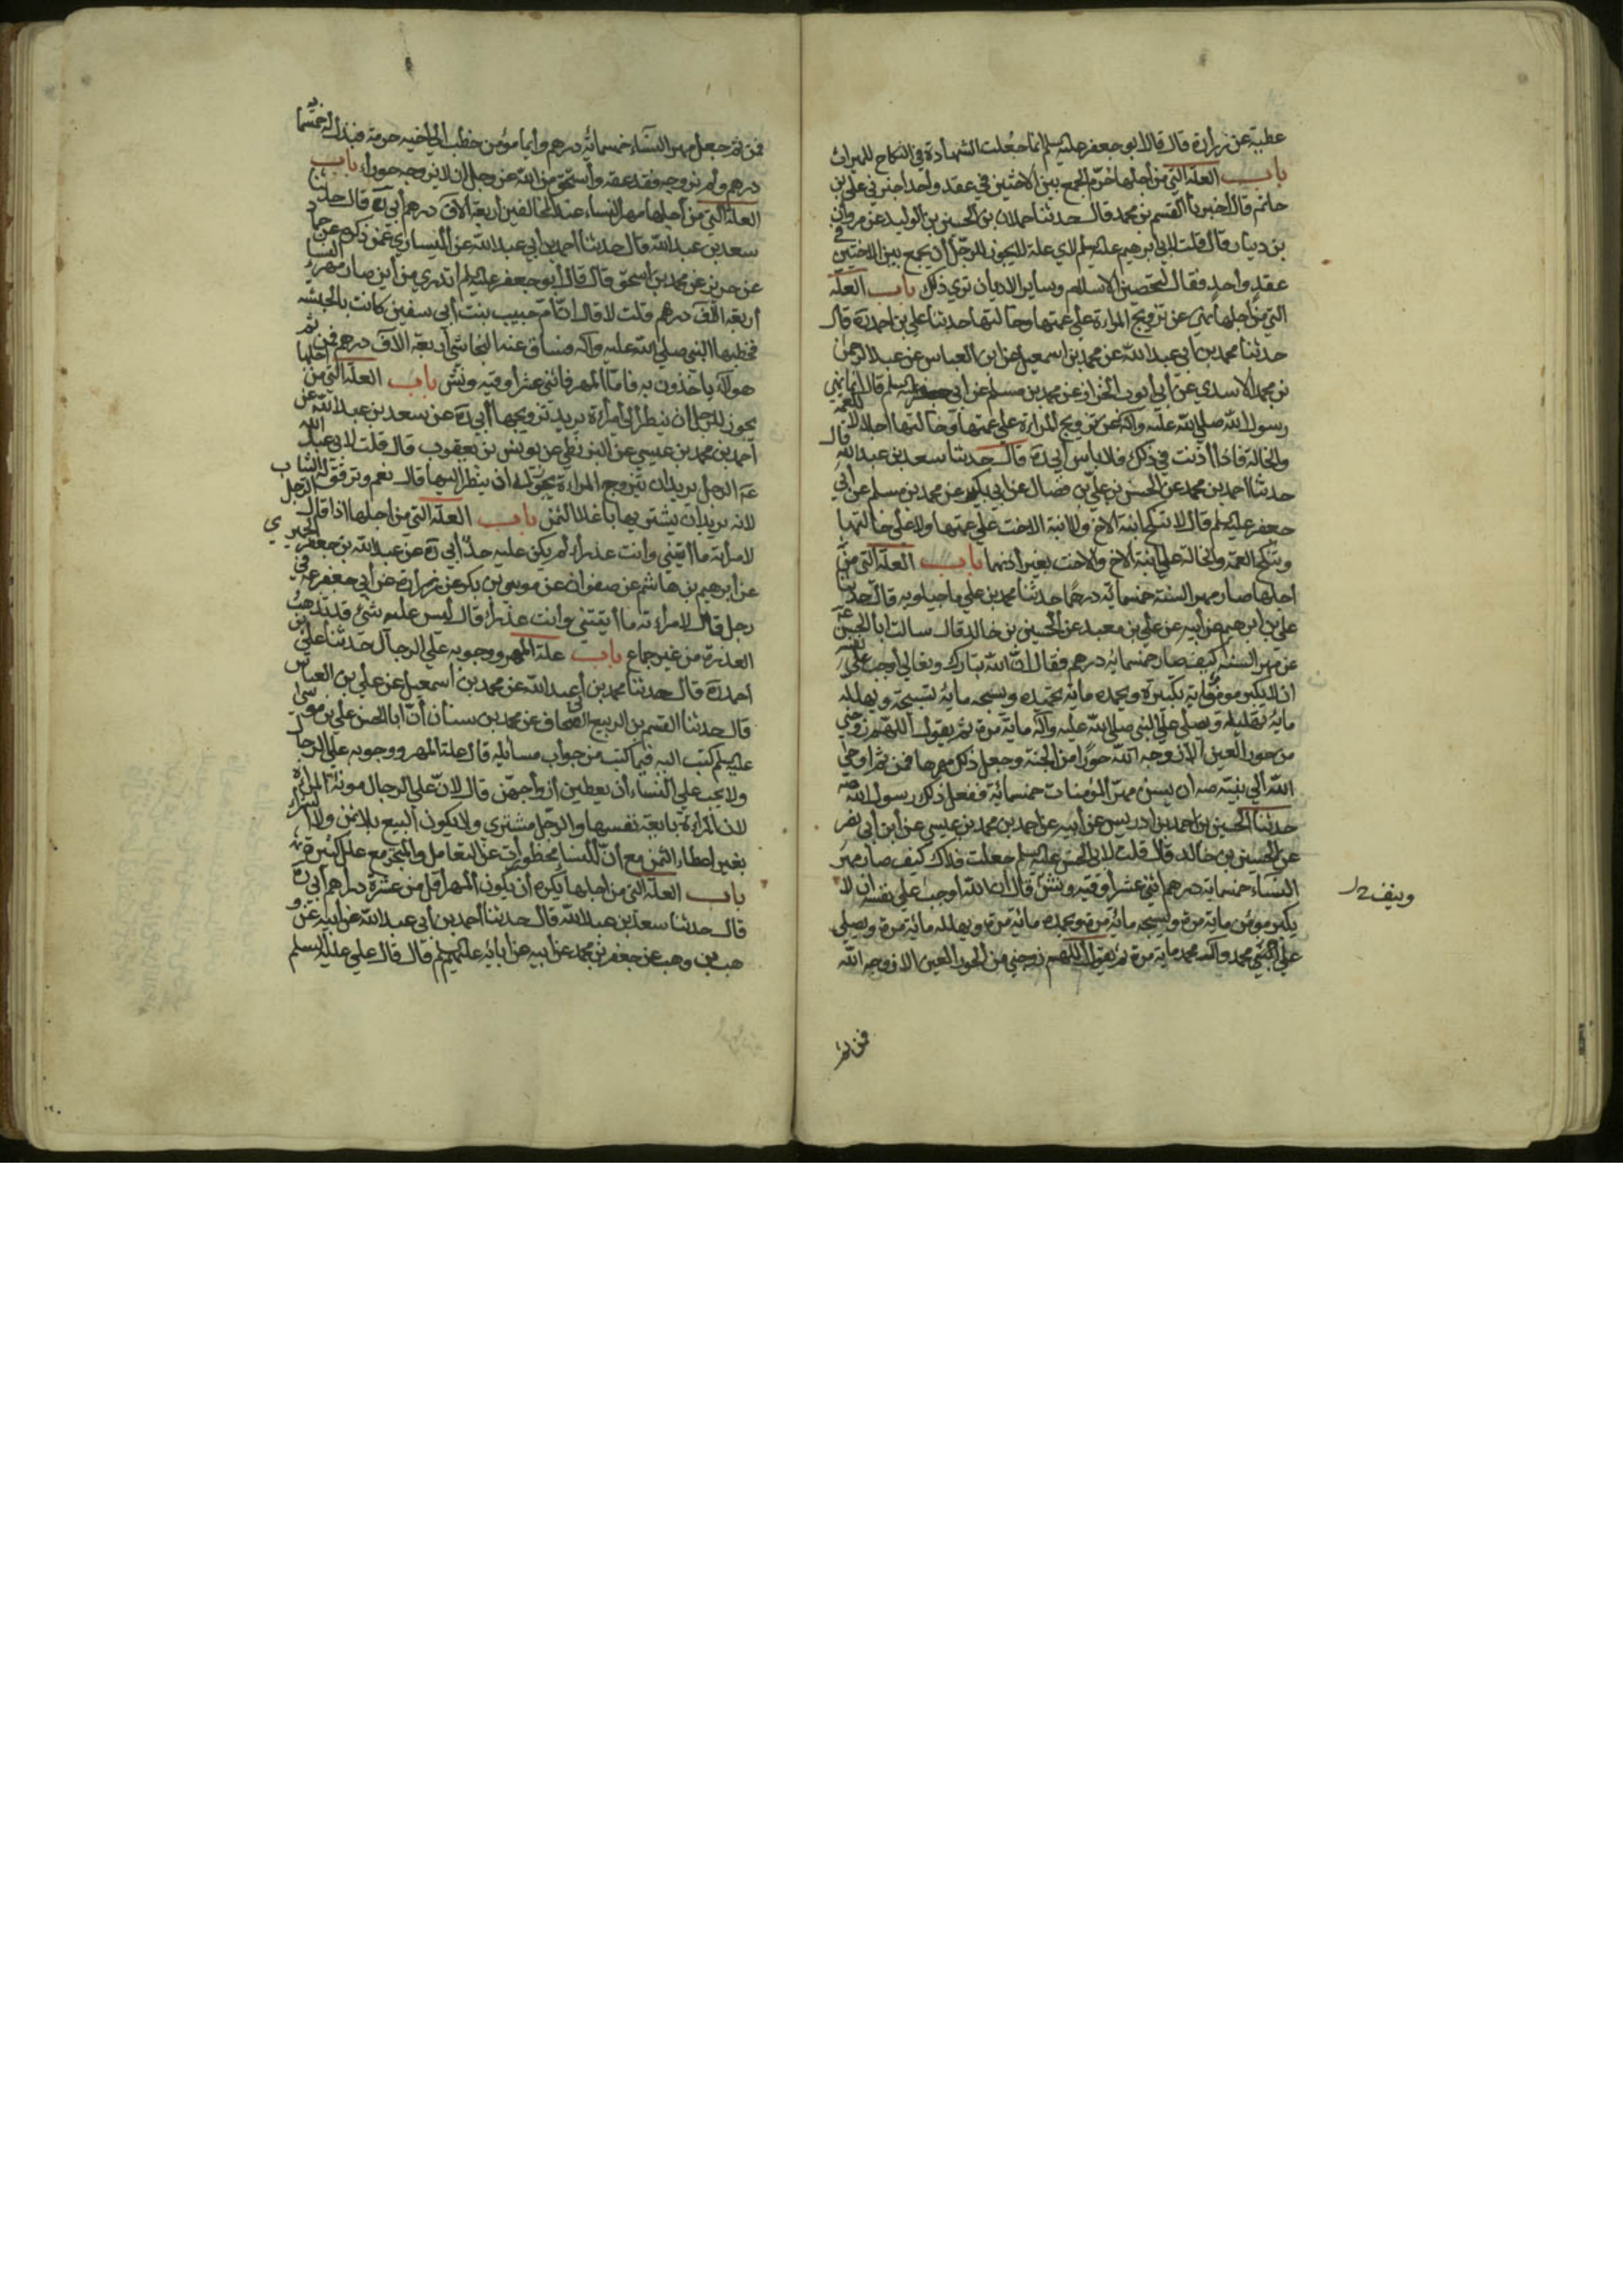 عطية عن زرارة قال قال ابو جعفر عليه سلم انما جعلت الشهادة في النكاح للميراث
باب العلة التي من أجلها حرّم الجمع بين الاختين في عقد واحد اخبرني علي بن
حاتم قال أخبرنا القسم بن محمد قال حدثنا حمدان بن الحسين بن الوليد عن مروان
بن دينار قال قلت لابي ابرهيم عليه سلم لاي علة لا يجوز للرجل أن يجمع بين الاختين في
عقد واحد فقال لتحصين الاسلام وساير الاديان تري ذلك باب العلة
التي من أجلها نهي عن تزويج المراة علي عمتها وخالتها حدثنا علي بن احمد ره قال
حدثنا محمد بن ابي عبد الله عن محمد بن اسمعيل عن ابن العباس عن عبد الرحمن
بن محمد الاسدي عن أبي أيوب الخزاز عن محمد بن مسلم عن أبي جعفر عليه سلم قال انما نهي
رسول الله صلي الله عليه وآله عن تزويج المراة علي عمتها وخالتها اجلالا للعمة
والخالة فاذا أذنت في ذلك فلا باس أبي ره قال حدثنا سعد بن عبد الله قال
حدثنا احمد بن محمد عن الحسن بن علي بن فضال عن ابن بكير عن محمد بن مسلم عن أبي
جعفر عليه سلم قال لا تنكح ابنة الاخ ولا ابنة الاخت علي عمتها ولا علي خالتها
وتنكح العمة والخالة علي ابنة الاخ والاخت بغير أذنهما باب العلة التي من
اجلها صار مهر السنة خمسماية درهما حدثنا محمد بن علي ماجيلويه قال حدثنا
علي بن ابرهيم عن أبيه عن علي بن معبد عن الحسين بن خالد قال سالت ابا الحسن عه
عن مهر السنة كيف صار خمسمائة درهم فقال ان الله تبارك وتعالي أوجب علي نفسه
ان لا يكبره مومن ماية تكبيرة ويحمده ماية تحميدة ويسبحه مائة تسبيحة ويهلله
مائة تهليلة ويصلي علي النبي صلي الله عليه وآله ماية مرة ثم يقول اللهم زوجني
من حور العين الا زوجه الله حورا من الجنة وجعل ذلك مهرها فمن ثم اوحي
الله الي نبيه صه أن يسن مهر المؤمنات خمسمائة ففعل ذلك رسول الله صه
حدثنا الحسين بن احمد بن ادريس عن أبيه عن احمد بن محمد بن عيسي عن ابن أبي نصر
عن الحسين بن خالد قال قلت لابي الحسن عليه سلم جعلت فداك كيف صار مهر
النساء خمسماية درهم اثني عشر أوقية ونش قال ان الله أوجب علي نفسه ان لا
يكبره مومن ماية مرة ويسبحه مائة مرة ويحمده مائة مرة ويهلله مائة مرة ويصلي
علي النبي محمد وآله محمد ماية مرة ثم يقول اللهم زوجني من الحور العين الا زوجه الله
فمن ثم
فمن ثم جعل مهر النساء خمسمائة درهم وأيما مؤمن خطب الي اخيه حرمة فبذل له خمسماية
درهم ولم يزوجه فقد عقه وأستحق من الله عز وجل ان لا يزوجه حورا باب
العلة التي من أجلها مهر النساء عند المخالفين أربعة الاف درهم أبي ره قال حدثنا
سعد بن عبد الله قال حدثنا احمد بن أبي عبد الله عن السياري عمن ذكره عن حماد
عن حريز عن محمد بن اسحق قال قال أبو جعفر عليه سلم اتدري من أين صار مهر النساء
أربعة الف درهم قلت لا قال ان أم حبيب بنت أبي سفين كانت بالحبشه
فخطبها النبي صلي الله عليه وآله فساق عنه النجاشي أربعة الاف درهم فمن ثم
هولآء ياخذون به فاما المهر فاثني عشر أوقية ونش باب العلة التي من اجلها
يجوز للرجل أن ينظر الي أمراة يريد تزويجها أبي ره عن سعد بن عبد الله عن
أحمد بن محمد بن عيسي عن البزنطي عن يونس بن يعقوب قال قلت لابي عبد الله
عه الرجل يريد ان يتزوج المراة يجوز له ان ينظر اليها قال نعم وترقق له الثياب
لانه يريد أن يشتريها باغلا الثمن باب العلة التي من اجلها اذا قال الرجل
لامرأته ما أتيتني وانت عذراء لم يكن عليه حد أبي ره عن عبد الله بن جعفر الحميري
عن ابرهيم بن هاشم عن صفوان عن موسي بن بكر عن زرارة عن أبي جعفر عه في
رجل قال لامراته ما أتيتني وانت عذراء قال ليس عليه شئ قد تذهب
العذرة من غير جماع باب علة المهر ووجوبه علي الرجال حدثنا علي بن
أحمد ره قال حدثنا محمد بن أبي عبد الله عن محمد بن أسمعيل عن علي بن العباس
قال حدثنا القسم بن الربيع الصحاف عن محمد بن سنان أن ابا الحسن علي بن موسي
عليه سلم كتب اليه فيما كتب من جواب مسائله قال علة المهر ووجوبه علي الرجال
ولا يجب علي النساء أن يعطين أزواجهن قال لان علي الرجال مونة المراة
لان المراة بايعة نفسها والرجل مشتري ولا يكون البيع بلا ثمن ولا الشراء
بغير اعطاء الثمن مع أن النساء محظورات عن التعامل والمتجر مع علل كثيرة
باب العلة التي من اجلها يكره أن يكون المهر أقل من عشرة دراهم أبي ره
قال حدثنا سعد بن عبد الله قال حدثنا أحمد بن أبي عبد الله عن أبيه عن و
هب بن وهب عن جعفر بن محمد عن ابيه عن آبائه عليهم سلم قال قال علي عليه السلم